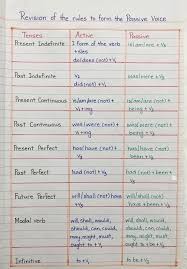 Revision of the rules to form the Passive Voice
Tenses Active Passive
Present Indefinite I form of the verb is/am/are + V3
+ s/es
do/does (not) + V1
Past Indefinite V2 was/were + V3
did (not) + V1
Present Continuous is/am/are (not) + is/am/are (not) +
V1 + ing being + V3
Past Continuous was/were (not) + was/were (not) +
V1 + ing being + V3
Present Perfect has/have (not) + has/have (not) +
V3 been + V3
Past Perfect had (not) + V3 had (not) + been +
V3
Future Perfect will/shall (not) will/shall (not) +
have + V3 have + been + V3
Modal verb will, shall, would, will, shall, would,
should, can, should, can,
could, may, could, may,
might, must, might, must,
ought to + V1 ought to + be + V3
Infinitive to + V1 to + be + V3